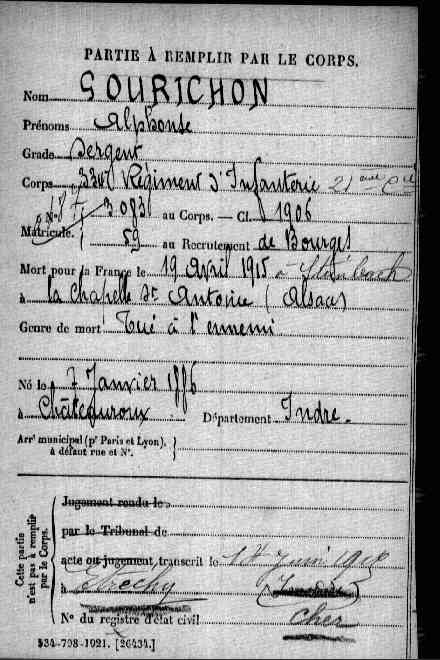 PARTIE À REMPLIR PAR LE CORPS.
Nom SOURICHON
Prénoms Alphonse
Grade Sergent
Corps 334e Régiment d'Infanterie 21eme Cie
N° 3083 au Corps. — Cl. 1906
Matricule. 59 au Recrutement de Bourges
Mort pour la France le 19 Avril 1915 à Steinbach
à la Chapelle St Antoine (Alsace)
Genre de mort Tué à l'ennemi
Né le 7 Janvier 1886
à Châteauroux Département Indre.
Arrt municipal (pr Paris et Lyon), à défaut rue et N°.
Cette partie n'est pas à remplir par le Corps.
Jugement rendu le
par le Tribunal de
acte ou jugement transcrit le 17 Juin 1918
à Etrechy
N° du registre d'état civil Cher
534-708-1921. [26434.]